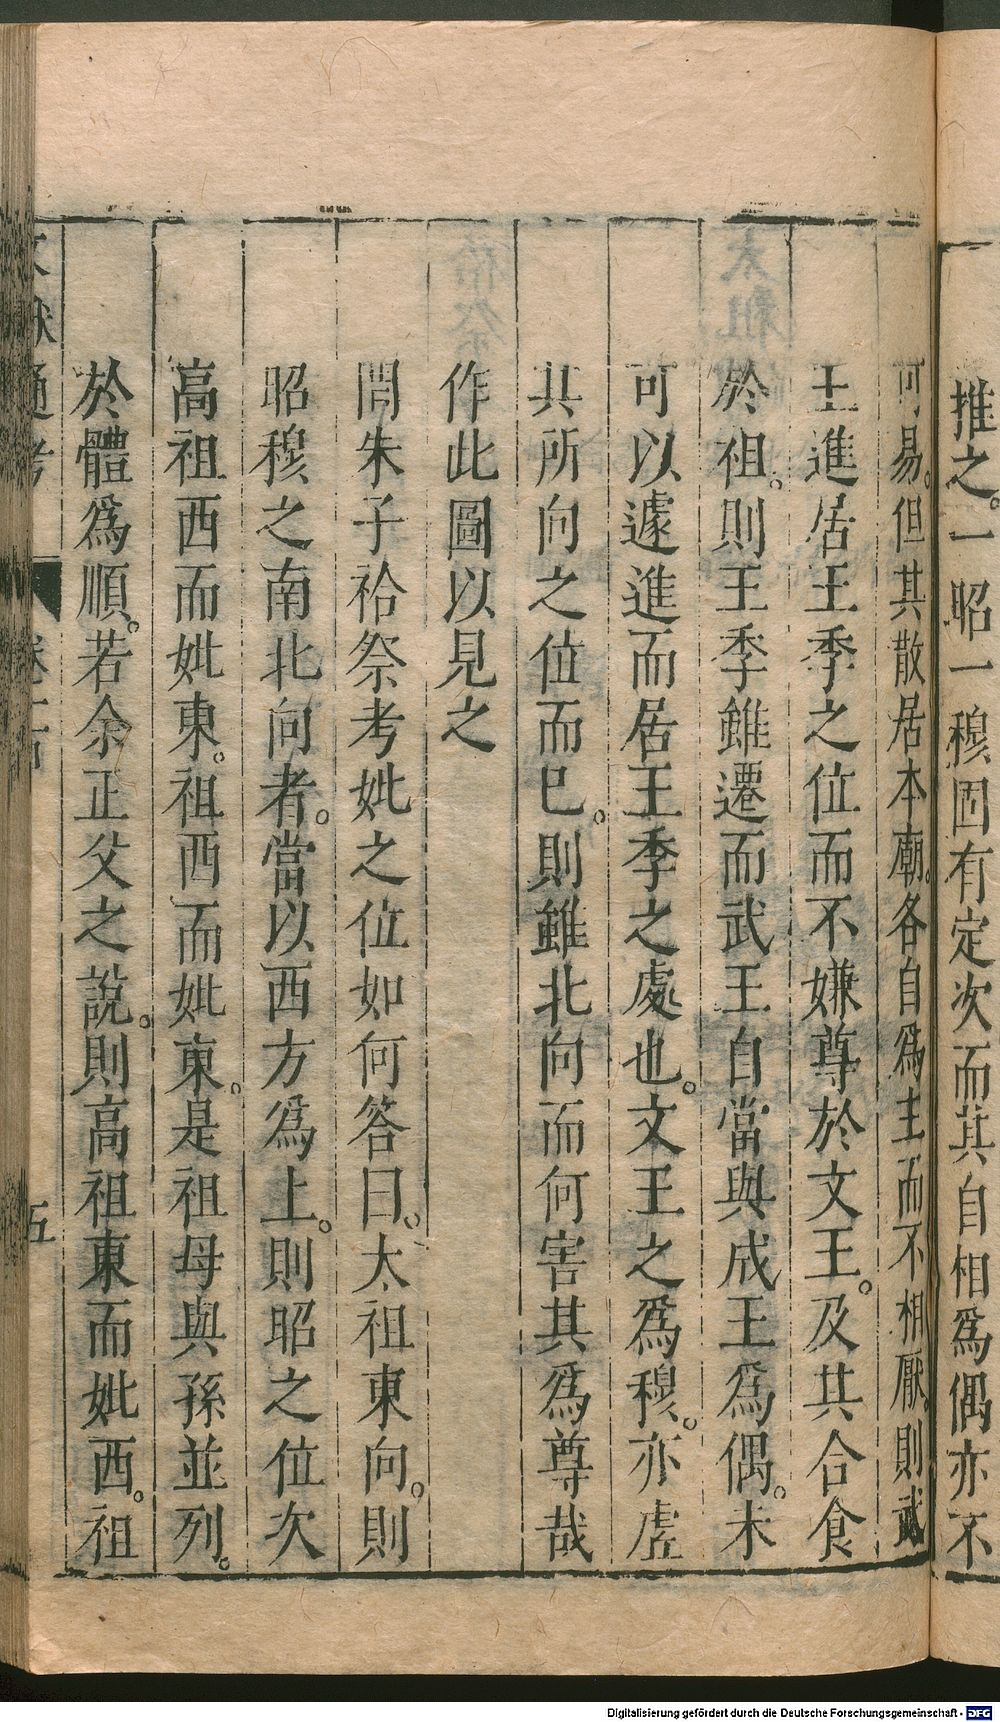 推之。一昭一穆固有定次而其自相爲偶亦不
可易。但其散居本廟。各自爲主而不相厭。則武
王進居王季之位而不嫌尊於文王。及其合食
於祖。則王季雖遷而武王自當與成王爲偶。未
可以遽進而居王季之處也。文王之爲穆。亦虛
其所向之位而已。則雖北向而何害其爲尊哉
作此圖以見之
問朱子祫祭考妣之位如何答曰。太祖東向。則
昭穆之南北向者。當以西方爲上。則昭之位次
高祖西而妣東。祖西而妣東。是祖母與孫並列。
於體爲順。若余正父之說。則高祖東而妣西。祖
文獻通考
五
Digitalisierung gefördert durch die Deutsche Forschungsgemeinschaft - DFG